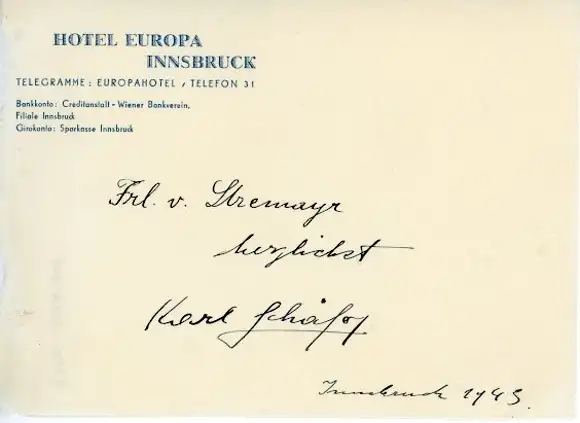 HOTEL EUROPA
INNSBRUCK
TELEGRAMME: EUROPAHOTEL / TELEFON 31
Bankkonto: Creditanstalt - Wiener Bankverein,
Filiale Innsbruck
Girokonto: Sparkasse Innsbruck
Frl. v. Stremayr
herzlichst
Karl Schäfer
Innsbruck 1943